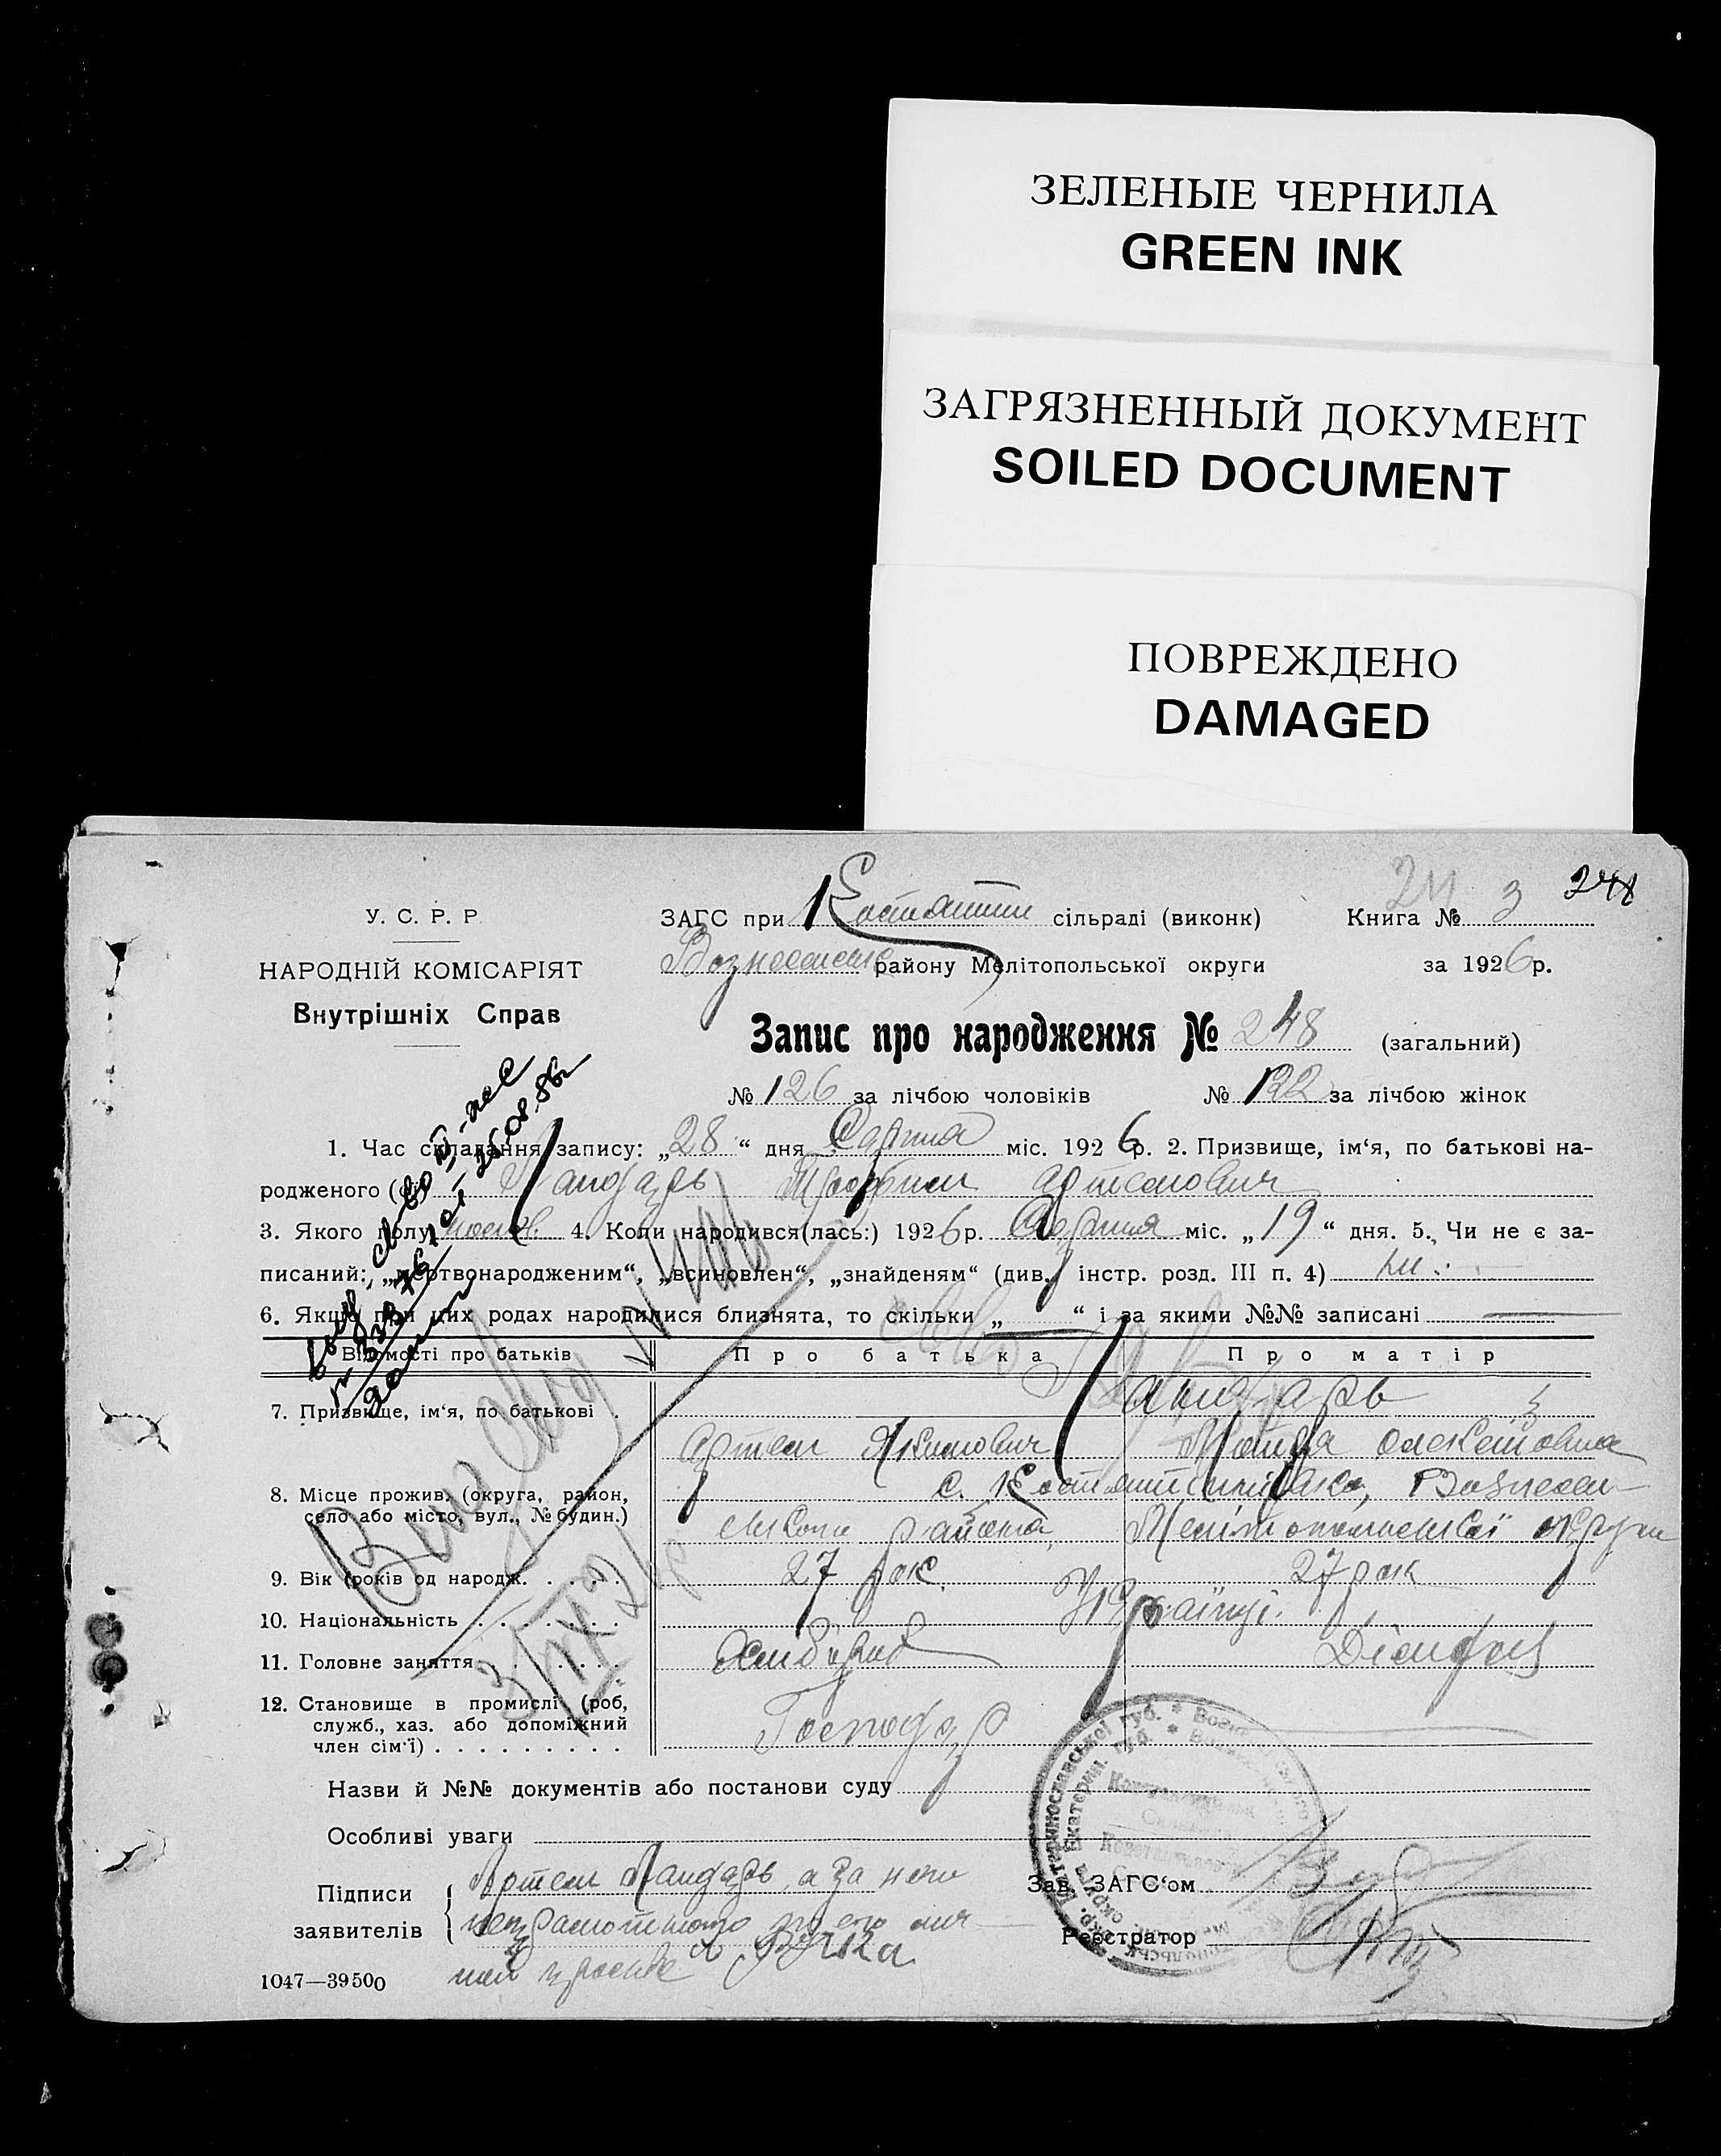 ЗЕЛЕНЫЕ ЧЕРНИЛА
GREEN INK
ЗАГРЯЗНЕННЫЙ ДОКУМЕНТ
SOILED DOCUMENT
ПОВРЕЖДЕНО
DAMAGED
248
У. С. Р. Р.
НАРОДНІЙ КОМІСАРІЯТ
Внутрішніх Справ
ЗАГС при сільраді (виконк) Книга № 3
району Мелітопольської округи за 1926 р.
Запис про народження № 248 (загальний)
№ 126 за лічбою чоловіків № 122 за лічбою жінок
1. Час складання запису: „28“ дня Серпня міс. 1926 р. 2. Призвище, ім‘я, по батькові на-
родженого (ої) Пандарь Трофим Артемович
3. Якого полу 4. Коли народився(лась:) 1926 р. Серпня міс. „19“ дня. 5. Чи не є за-
писаний: „мертвонародженим“, „всиновлен“, „знайденям“ (див. інстр. розд. III п. 4) ні.
6. Якщо при цих родах народилися близнята, то скільки „ “ і за якими №№ записані
Відомості про батьків Про батька Про матір
7. Призвище, ім‘я, по батькові Пандарь
Артем Якимович Мотря Олексіївна
8. Місце прожив. (округа, район,
село або місто, вул., № будин.)
района, Мелітопольської округи
9. Вік (років од народж. 27 рок. 27 рок
10. Національність Українці.
11. Головне заняття Хлібороб
12. Становище в промислі (роб,
служб., хаз. або допоміжний
член сім‘ї) Господар
Назви й №№ документів або постанови суду
Особливі уваги
Підписи
заявителів
Артем Пандарь, а за него
неграмотного по его лич-
Зав. ЗАГС‘ом
Реєстратор
1047—39500